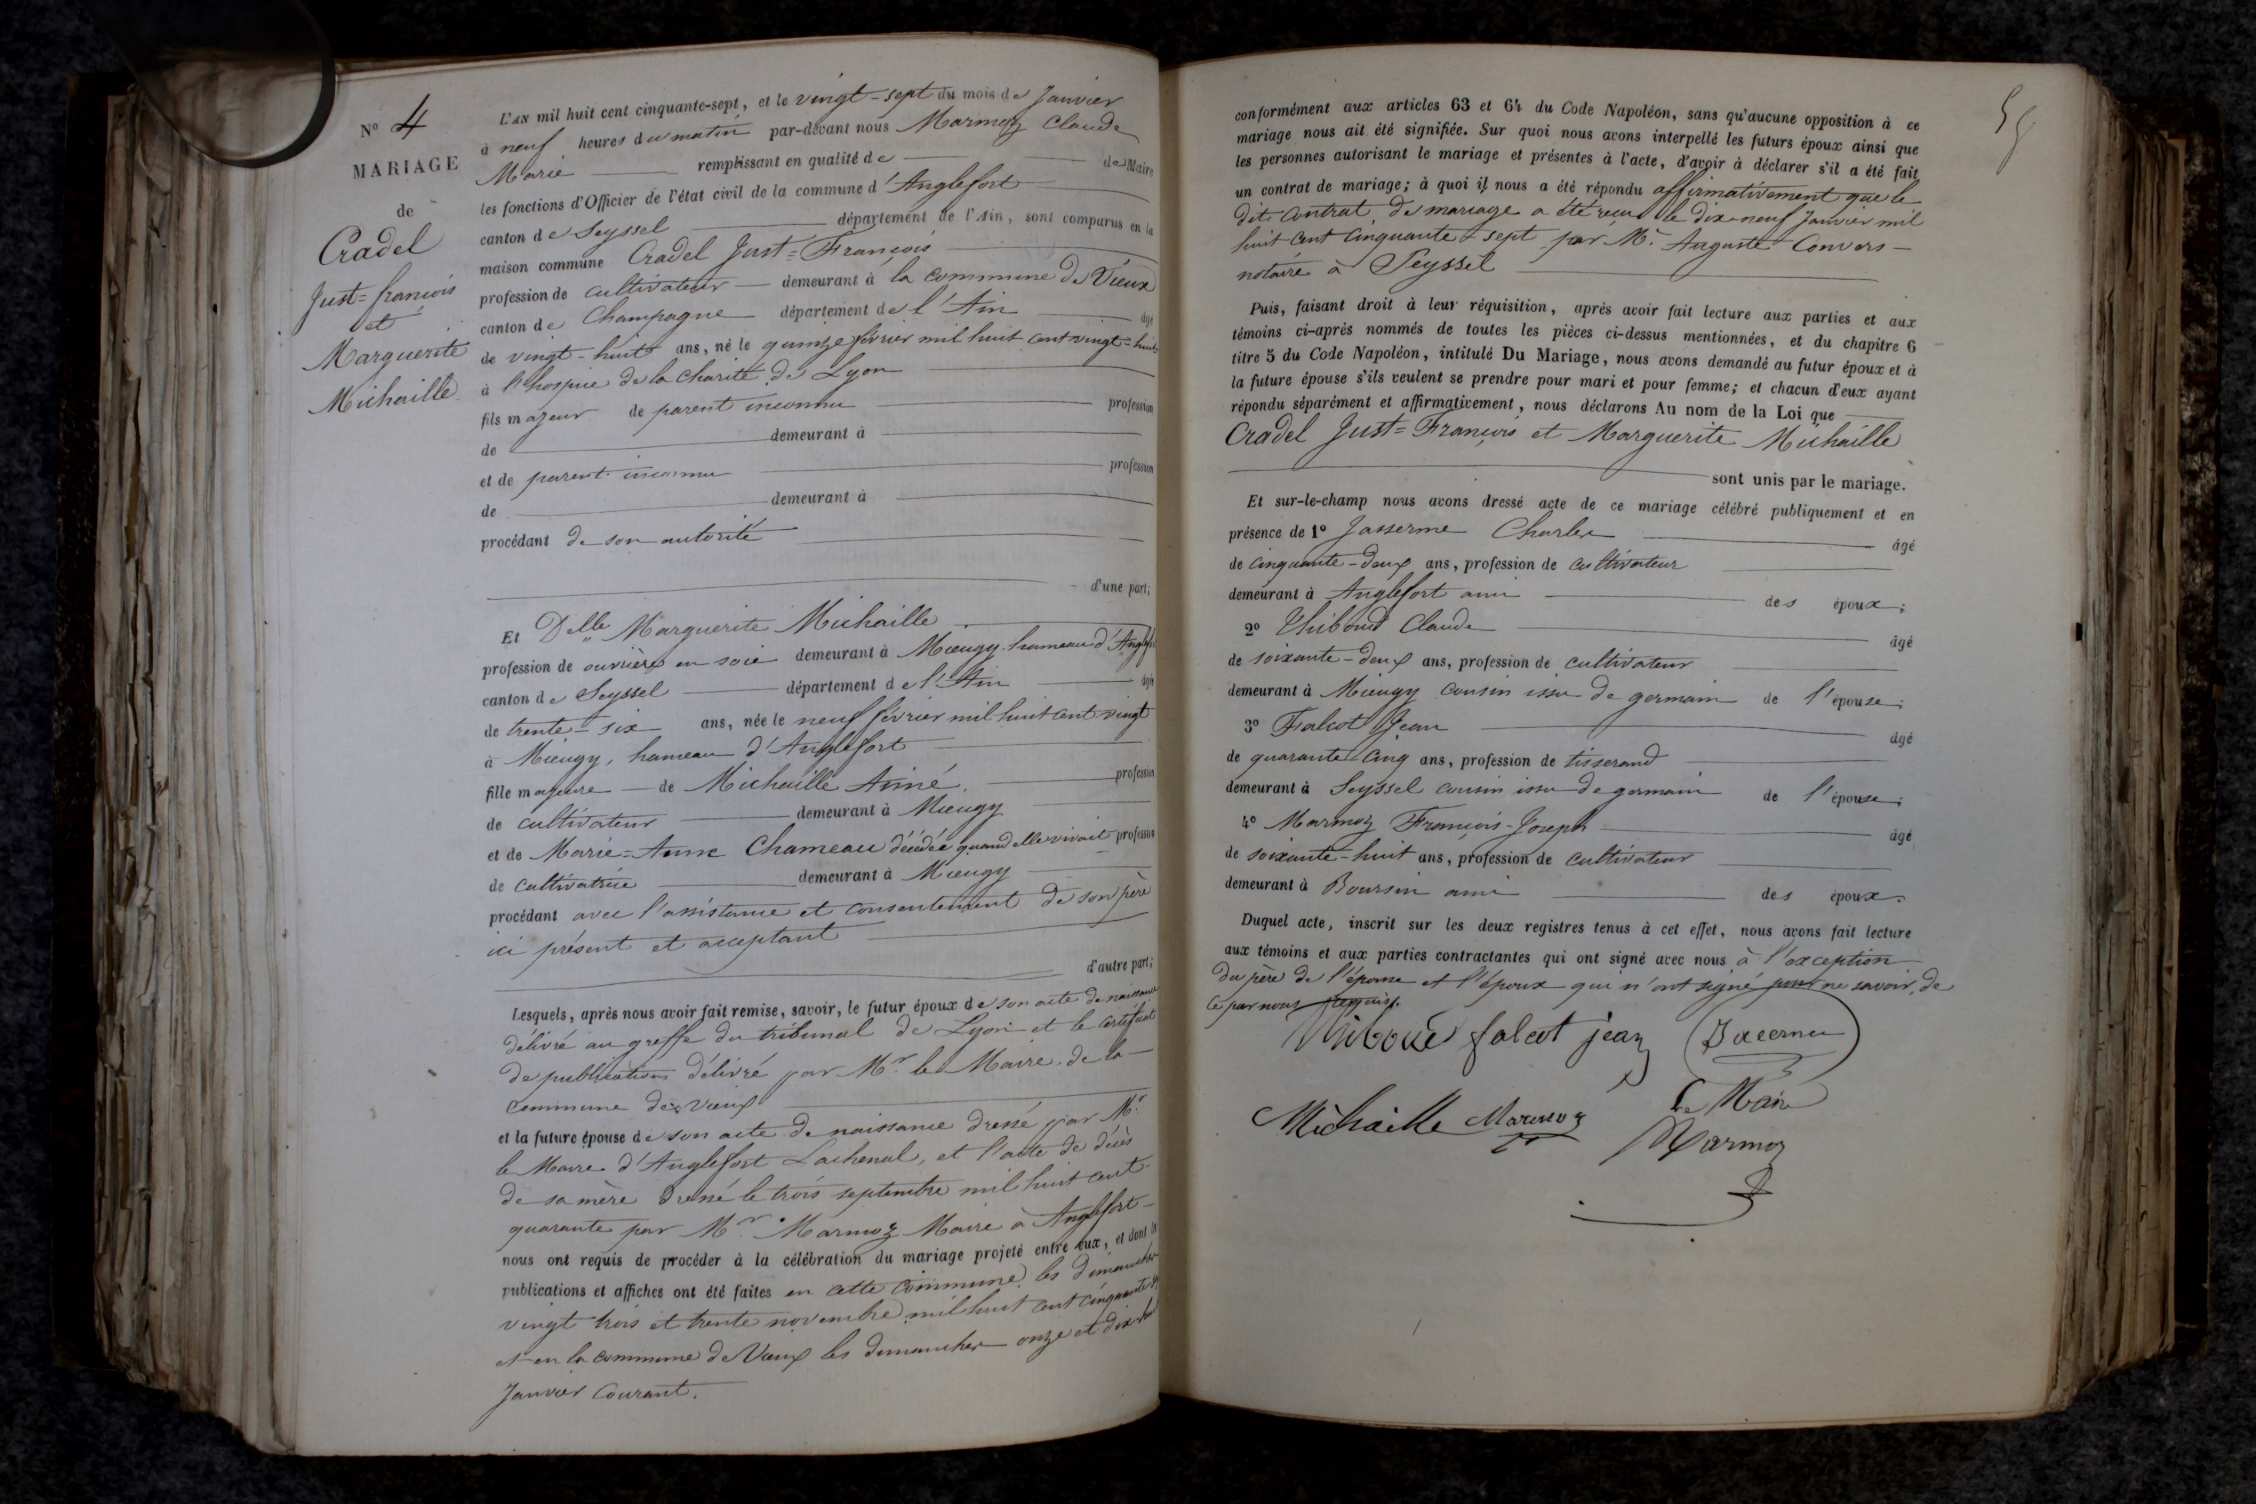 N° 4
MARIAGE
de
Cradel
Just=françois
et
Marguerite
Michaille
L'AN mil huit cent cinquante-sept, et le vingt-sept du mois de Janvier
à neuf heures du matin par-devant nous Marmoz Claude
Marie remplissant en qualité de de Maire
les fonctions d'Officier de l'état civil de la commune d'Anglefort
canton de Seyssel département de l'Ain, sont comparus en la
maison commune Cradel Just=François
profession de cultivateur demeurant à la commune de Vieux
canton de Champagne département de l'Ain âgé
de vingt-huit ans, né le quinze février mil huit cent vingt=huit
à l'hospice de la charité de Lyon
fils majeur de parent inconnu profession
de demeurant à
et de parent inconnu profession
de demeurant à
procédant de son autorité
d'une part;
Et Delle Marguerite Michaille
profession de ouvrière en soie demeurant à Mieugy hameau d'Anglefort
canton de Seyssel département de l'Ain âgé
de trente-six ans, née le neuf février mil huit cent vingt
à Mieugy, hameau d'Anglefort
fille majeure de Michaille Aimé profession
de cultivateur demeurant à Mieugy
et de Marie=Anne Chameau décédée quand elle vivait profession
de cultivatrice demeurant à Mieugy
procédant avec l'assistance et consentement de son père
ici présent et acceptant
d'autre part;
Lesquels, après nous avoir fait remise, savoir, le futur époux de son acte de naissance
délivré au greffe du tribunal de Lyon et le certificat
de publications délivré par Mr. le Maire de la
commune de Vieux
et la future épouse de son acte de naissance dressé par Mr
le Maire d'Anglefort Lachenal, et l'acte de décès
de sa mère dressé le trois septembre mil huit cent
quarante par Mr. Marmoz Maire à Anglefort
nous ont requis de procéder à la célébration du mariage projeté entre eux, et dont les
publications et affiches ont été faites en cette commune les dimanches
vingt trois et trente novembre mil huit cent cinquante
et en la commune de Vieux les dimanches onze et dix huit
Janvier courant.
conformément aux articles 63 et 64 du Code Napoléon, sans qu'aucune opposition à ce
mariage nous ait été signifiée. Sur quoi nous avons interpellé les futurs époux ainsi que
les personnes autorisant le mariage et présentes à l'acte, d'avoir à déclarer s'il a été fait
un contrat de mariage; à quoi il nous a été répondu affirmativement que le
dit contrat de mariage a été reçu le dix-neuf Janvier mil
huit cent cinquante-sept par Mr. Auguste Convers
notaire à Seyssel
Puis, faisant droit à leur réquisition, après avoir fait lecture aux parties et aux
témoins ci-après nommés de toutes les pièces ci-dessus mentionnées, et du chapitre 6
titre 5 du Code Napoléon, intitulé Du Mariage, nous avons demandé au futur époux et à
la future épouse s'ils veulent se prendre pour mari et pour femme; et chacun d'eux ayant
répondu séparément et affirmativement, nous déclarons Au nom de la Loi que
Cradel Just=François et Marguerite Michaille
sont unis par le mariage.
Et sur-le-champ nous avons dressé acte de ce mariage célébré publiquement et en
présence de 1° Jasserme Charles âgé
de cinquante-deux ans, profession de cultivateur
demeurant à Anglefort ami des époux;
2° Thiboud Claude âgé
de soixante-deux ans, profession de cultivateur
demeurant à Mieugy cousin issu de germain de l'épouse;
3° Falcot Jean âgé
de quarante cinq ans, profession de tisserand
demeurant à Seyssel cousin issu de germain de l'épouse;
4° Marmoz François-Joseph âgé
de soixante-huit ans, profession de cultivateur
demeurant à Boursin ami des époux.
Duquel acte, inscrit sur les deux registres tenus à cet effet, nous avons fait lecture
aux témoins et aux parties contractantes qui ont signé avec nous à l'exception
du père de l'épouse et l'époux qui n'ont signé pour ne savoir, de
ce par nous requis.
Thiboud falcot jean
Michaille Marmoz Le Maire
Marmoz